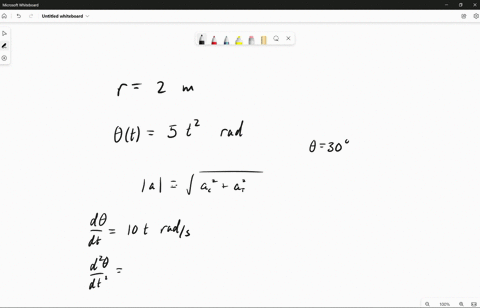 Microsoft Whiteboard
Untitled whiteboard
r = 2 m
θ(t) = 5 t² rad
θ = 30°
|a| = √(a_c² + a_T²)
dθ/dt = 10 t rad/s
d²θ/dt² =
100%